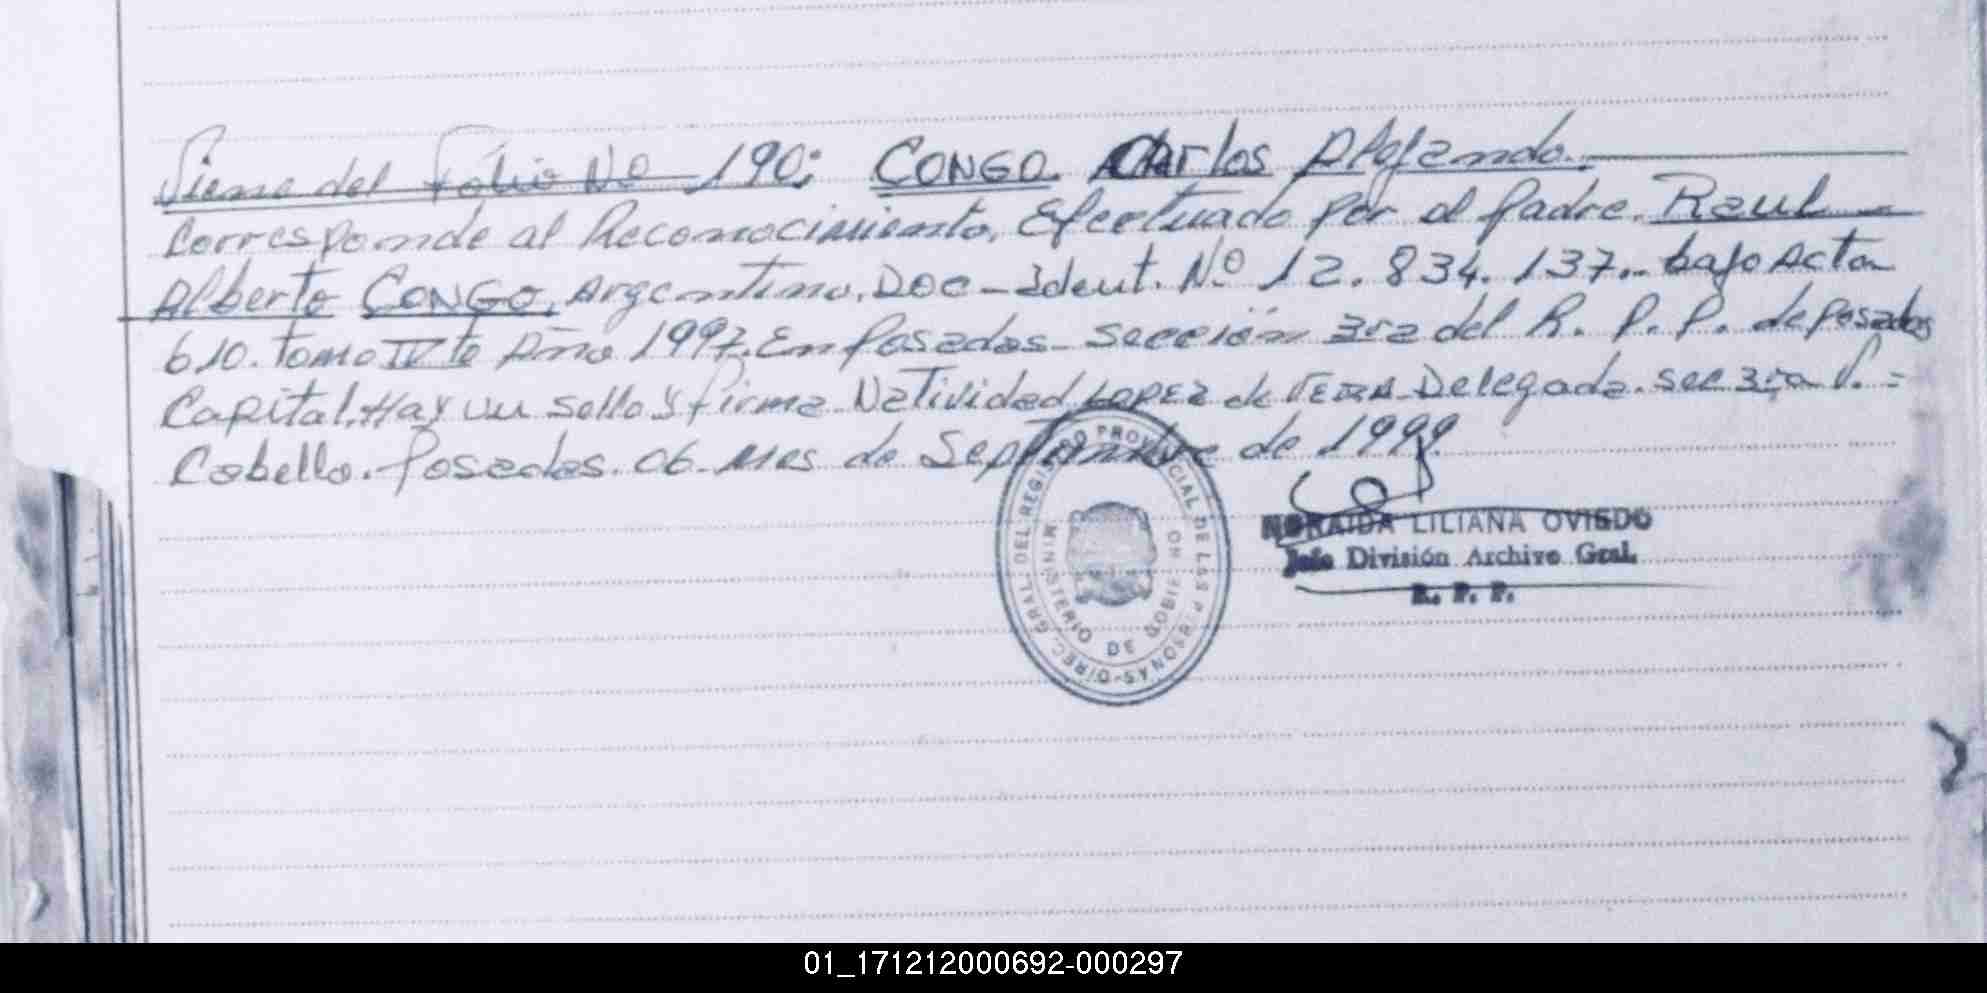 Viene del Folio No 190: CONGO Carlos Alejando.
Corresponde al Reconocimiento, Efectuado por el padre. Raul
Alberto CONGO, Argentino, Doc-Ident. Nº 12.834.137.- bajo Acta
610. Tomo IV to Año 1997. En Posadas- Sección 3ra del R. P. P. de Posadas
Capital. Hay un sello y firma Natividad LOPEZ de VERA Delegada. Sec 3ra V. =
Cabello. Posadas. 06 Mes de Septiembre de 1999.
DIREC. GRAL. DEL REGISTRO PROVINCIAL DE LAS PERSONAS
MINISTERIO DE GOBIERNO
NORAIDA LILIANA OVIEDO
Jefe División Archivo Gral.
R. P. P.
01_171212000692-000297